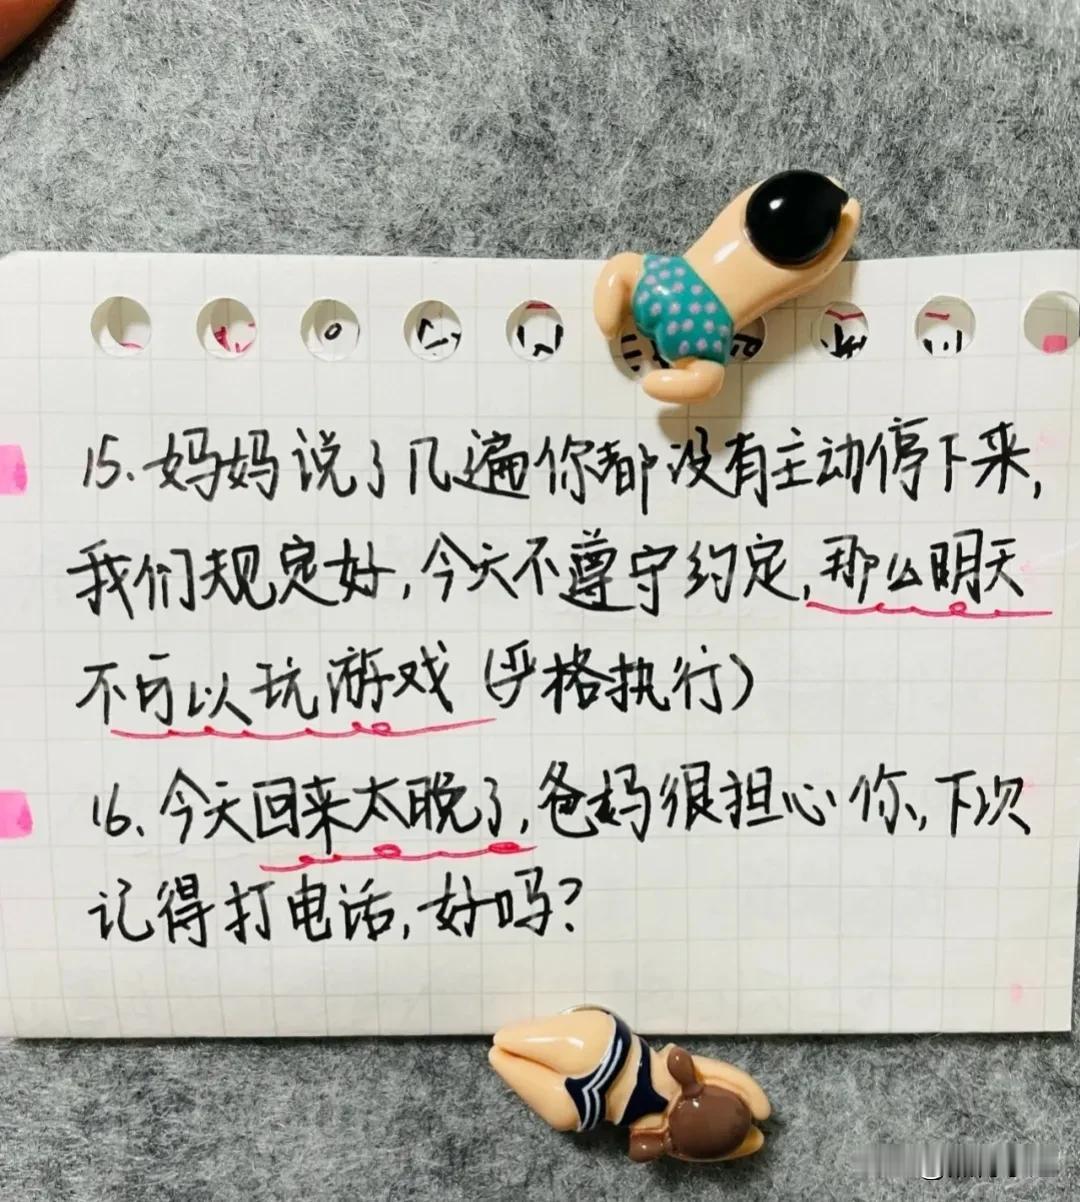 15.妈妈说了几遍你都没有主动停下来,
我们规定好,今天不遵守约定,那么明天
不可以玩游戏(严格执行)
16、今天回来太晚了,爸妈很担心你,下次
记得打电话,好吗?